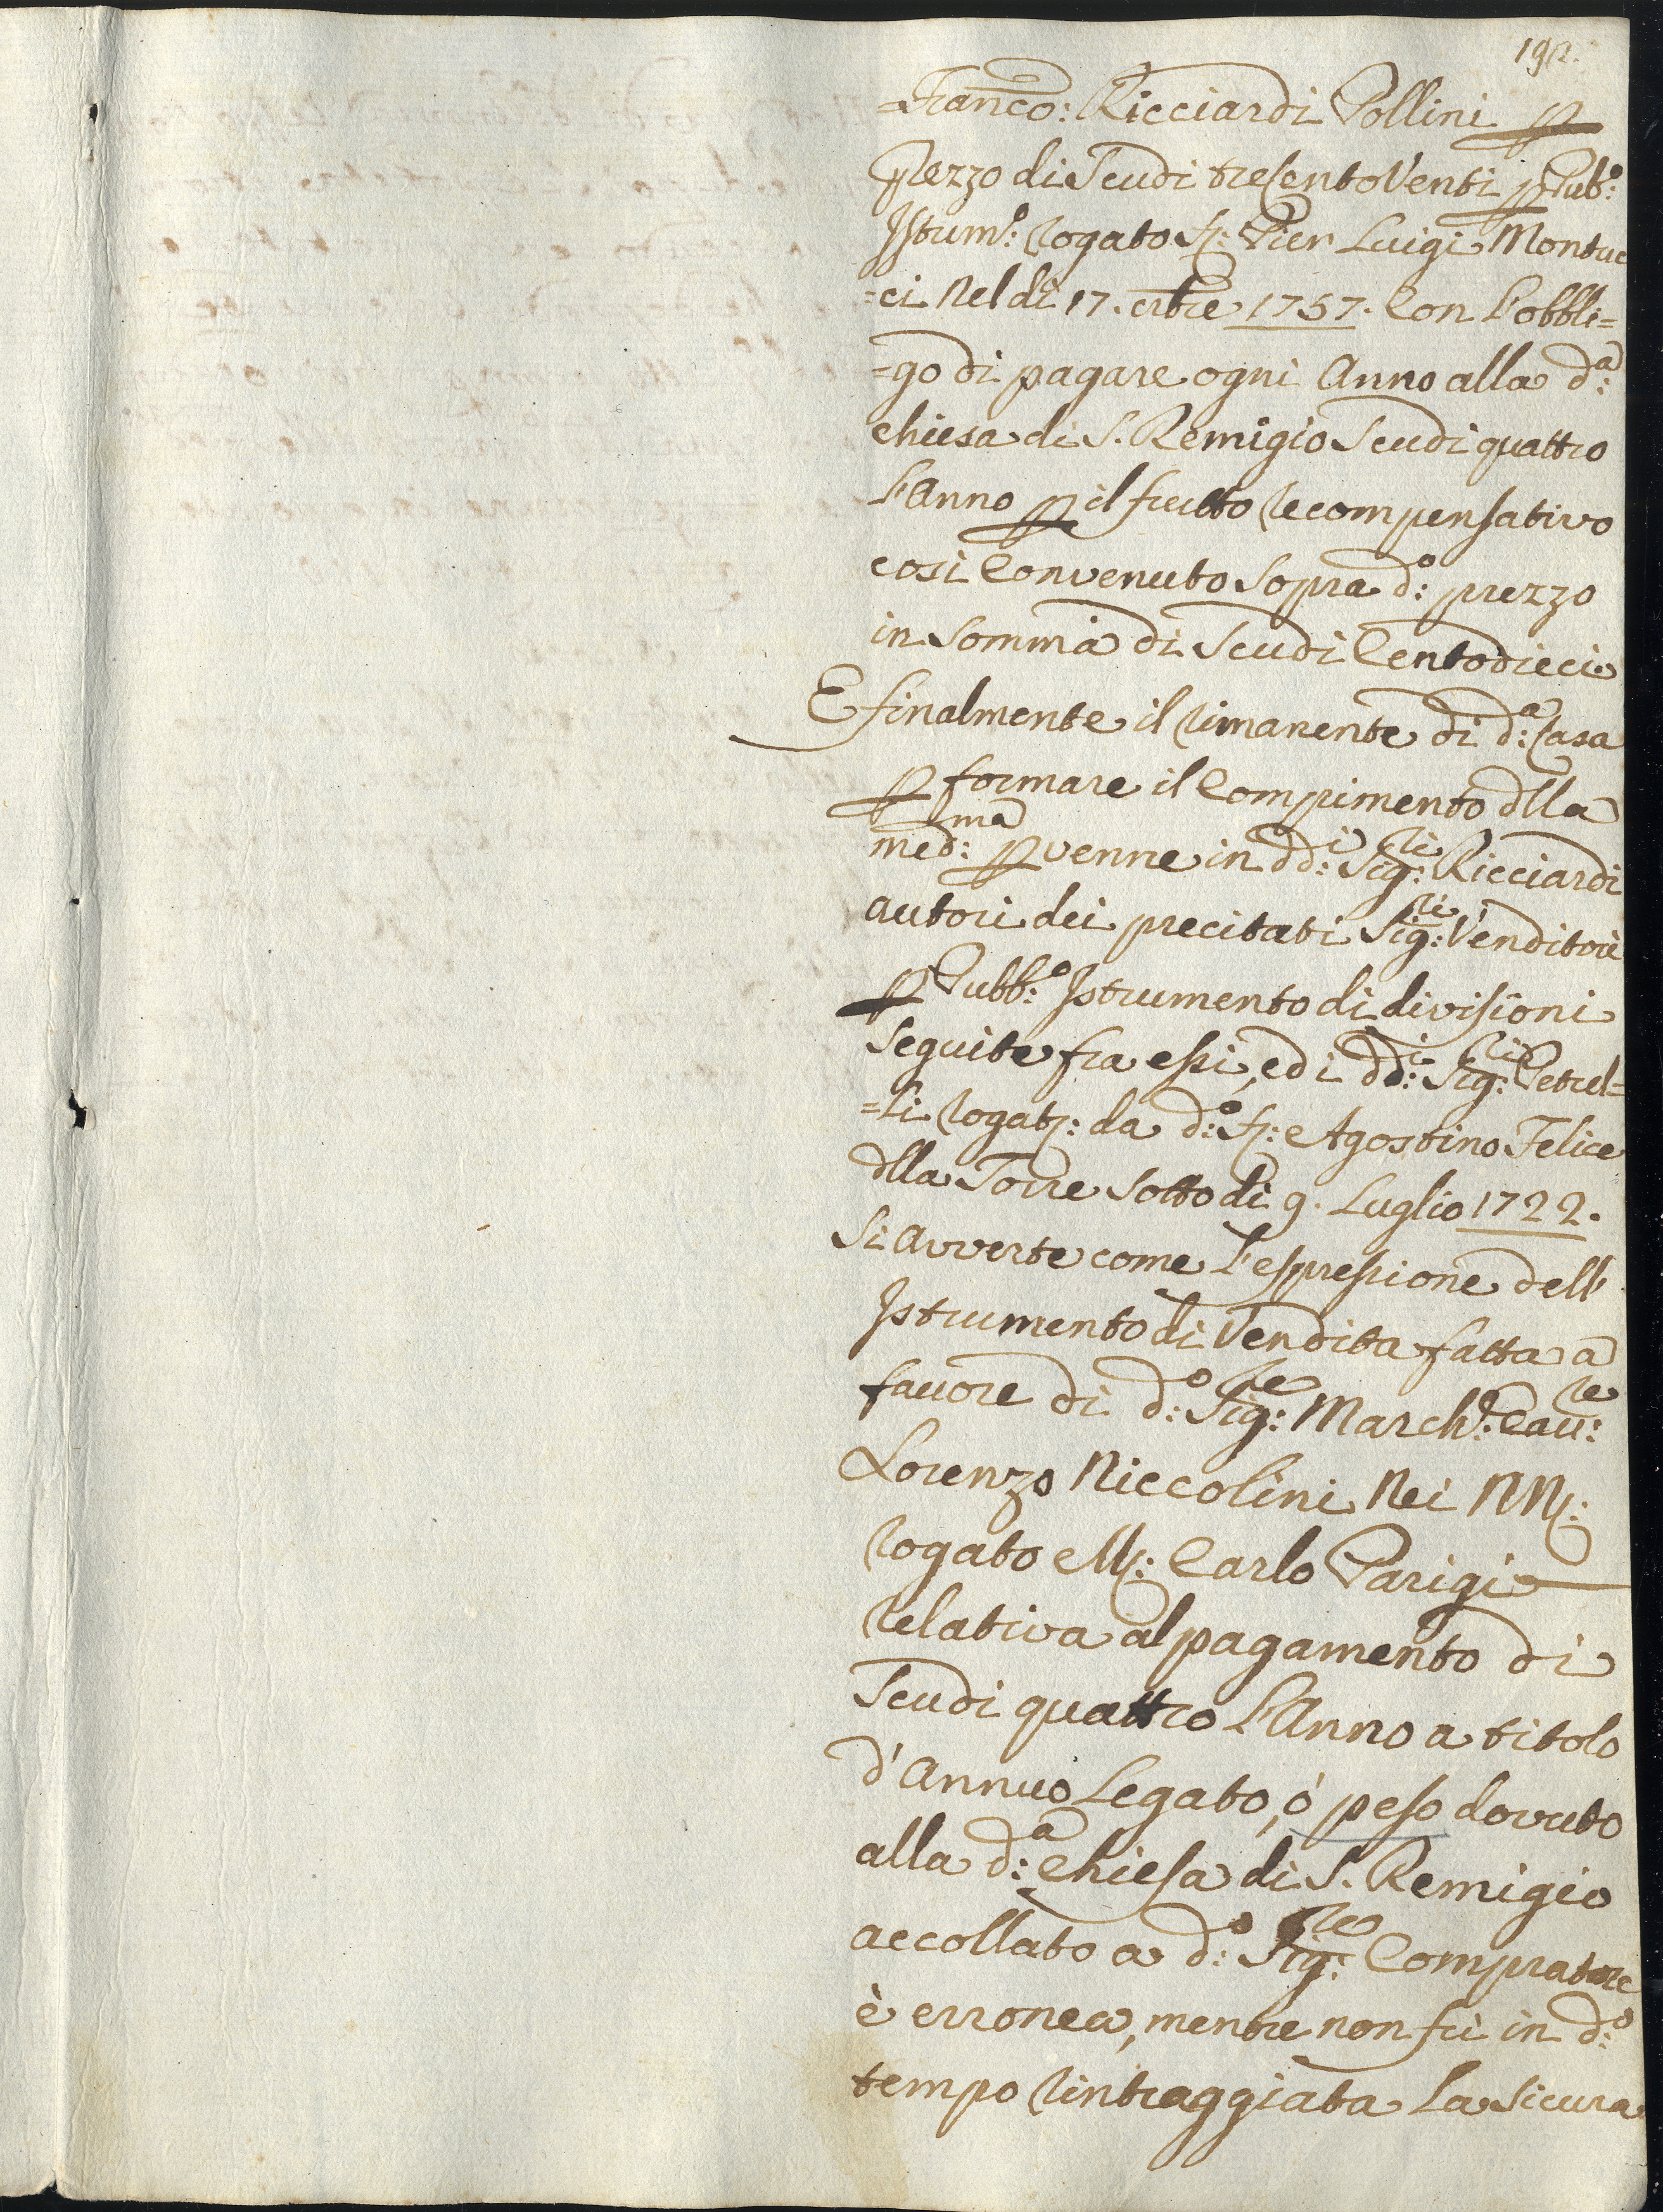 192.
=Franco: Ricciardi Pollini p
Prezzo di Scudi tresento Venti p Pub:o
Istum:o rogato Sr: Pier Luigi Montuc
=ci nel dì 17. 1757. Con l'obbli=
=go di pagare ogni Anno alla d:a
chiesa di S. Remigio Scudi quattro
l'Anno p il frutto recompensativo
così Convenuto Sopra d:o prezzo
in Somma di Scudi Centodieci
E finalmente il rimanente di d:a Casa
p formare il Compimento dlla
med:ma pvenne in dd:i Sig:ri Ricciardi
autori dei precitati Sig:ri Venditori
p Pubb:o Istrumento di divisioni
Seguite fra essi, ed i dd:i Sig:ri Petrel=
=li rogat: da d:o Sr: Agostino Felice
dlla Torre Sotto dì 9. Luglio 1722.
Si avverte come l'espressione dell'
Istrumento di Vendita fatta a
favore di d:o Sig:re March:e Cav:re
Lorenzo Niccolini Nei
rogato Mr: Carlo Parigi
relativa al pagamento di
Scudi quattro l'Anno a titolo
d'Annuo Legato, ò peso dovuto
alla d:a Chiesa di S. Remigio
accollato a d:o Sig:re Compratore
è erronea, mentre non fù in d:o
tempo rintraggiata la Sicura